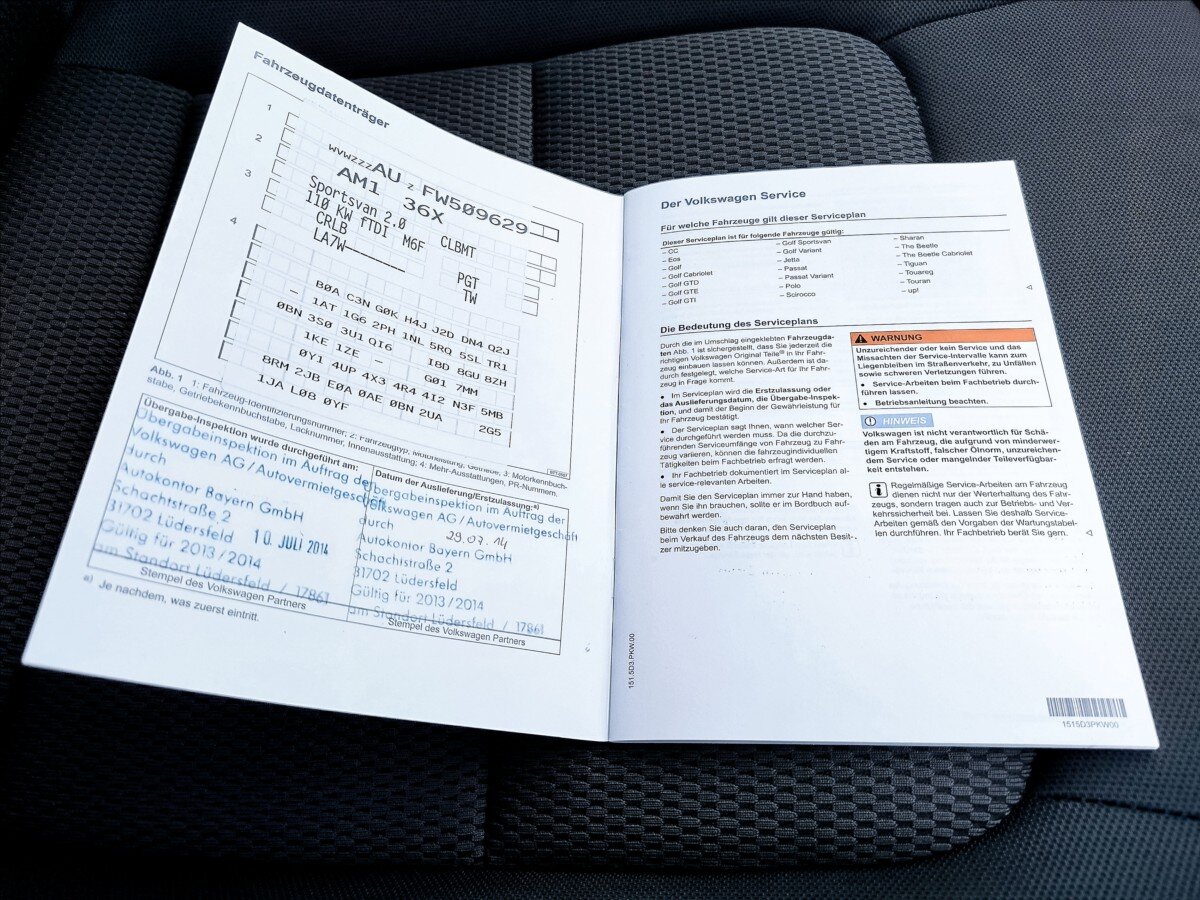 Fahrzeugdatenträger
1
2
3
4
WVWZZZAU Z FW509629
AM1 36X
Sportsvan 2.0
110 KW fTDI M6F CLBMT
CRLB
LA7W PGT
TW
B0A C3N G0K H4J J2D DN4 Q2J
– 1AT 1G6 2PH 1NL 5RQ 5SL TR1
0BN 3S0 3U1 QI6 I8D 8GU 8ZH
1KE 1ZE – G01 7MM
0Y1 4UP 4X3 4R4 4I2 N3F 5MB
8RM 2JB E0A 0AE 0BN 2UA
1JA L08 0YF 2G5
Abb. 1 1: Fahrzeug-Identifizierungsnummer; 2: Fahrzeugtyp, Motorleistung, Getriebe; 3: Motorkennbuch-
stabe, Getriebekennbuchstabe, Lacknummer, Innenausstattung; 4: Mehr-Ausstattungen, PR-Nummern.
Übergabe-Inspektion wurde durchgeführt am:
Übergabeinspektion im Auftrag der
Volkswagen AG / Autovermietgeschäft
durch
Autokontor Bayern GmbH
Schachtstraße 2
31702 Lüdersfeld
10. JULI 2014
Gültig für 2013/2014
am Standort Lüdersfeld / 17861
Stempel des Volkswagen Partners
Datum der Auslieferung/Erstzulassung:a)
Übergabeinspektion im Auftrag der
Volkswagen AG / Autovermietgeschäft
durch
29.07.14
Autokontor Bayern GmbH
Schachtstraße 2
31702 Lüdersfeld
Gültig für 2013/2014
am Standort Lüdersfeld / 17861
Stempel des Volkswagen Partners
a) Je nachdem, was zuerst eintritt.
Der Volkswagen Service
Für welche Fahrzeuge gilt dieser Serviceplan
Dieser Serviceplan ist für folgende Fahrzeuge gültig:
– CC
– Eos
– Golf
– Golf Cabriolet
– Golf GTD
– Golf GTE
– Golf GTI
– Golf Sportsvan
– Golf Variant
– Jetta
– Passat
– Passat Variant
– Polo
– Scirocco
– Sharan
– The Beetle
– The Beetle Cabriolet
– Tiguan
– Touareg
– Touran
– up!
Die Bedeutung des Serviceplans
Durch die im Umschlag eingeklebten Fahrzeugda-
ten Abb. 1 ist sichergestellt, dass Sie jederzeit die
richtigen Volkswagen Original Teile® in Ihr Fahr-
zeug einbauen lassen können. Außerdem ist da-
durch festgelegt, welche Service-Art für Ihr Fahr-
zeug in Frage kommt.
● Im Serviceplan wird die Erstzulassung oder
das Auslieferungsdatum, die Übergabe-Inspek-
tion, und damit der Beginn der Gewährleistung für
Ihr Fahrzeug bestätigt.
● Der Serviceplan sagt Ihnen, wann welcher Ser-
vice durchgeführt werden muss. Da die durchzu-
führenden Serviceumfänge von Fahrzeug zu Fahr-
zeug variieren, können die fahrzeugindividuellen
Tätigkeiten beim Fachbetrieb erfragt werden.
● Ihr Fachbetrieb dokumentiert im Serviceplan al-
le service-relevanten Arbeiten.
Damit Sie den Serviceplan immer zur Hand haben,
wenn Sie ihn brauchen, sollte er im Bordbuch auf-
bewahrt werden.
Bitte denken Sie auch daran, den Serviceplan
beim Verkauf des Fahrzeugs dem nächsten Besit-
zer mitzugeben.
WARNUNG
Unzureichender oder kein Service und das
Missachten der Service-Intervalle kann zum
Liegenbleiben im Straßenverkehr, zu Unfällen
sowie schweren Verletzungen führen.
● Service-Arbeiten beim Fachbetrieb durch-
führen lassen.
● Betriebsanleitung beachten.
HINWEIS
Volkswagen ist nicht verantwortlich für Schä-
den am Fahrzeug, die aufgrund von minderwer-
tigem Kraftstoff, falscher Ölnorm, unzureichen-
dem Service oder mangelnder Teileverfügbar-
keit entstehen.
Regelmäßige Service-Arbeiten am Fahrzeug
dienen nicht nur der Werterhaltung des Fahr-
zeugs, sondern tragen auch zur Betriebs- und Ver-
kehrssicherheit bei. Lassen Sie deshalb Service-
Arbeiten gemäß den Vorgaben der Wartungstabel-
len durchführen. Ihr Fachbetrieb berät Sie gern.
151.5D3.PKW.00
1515D3PKW00